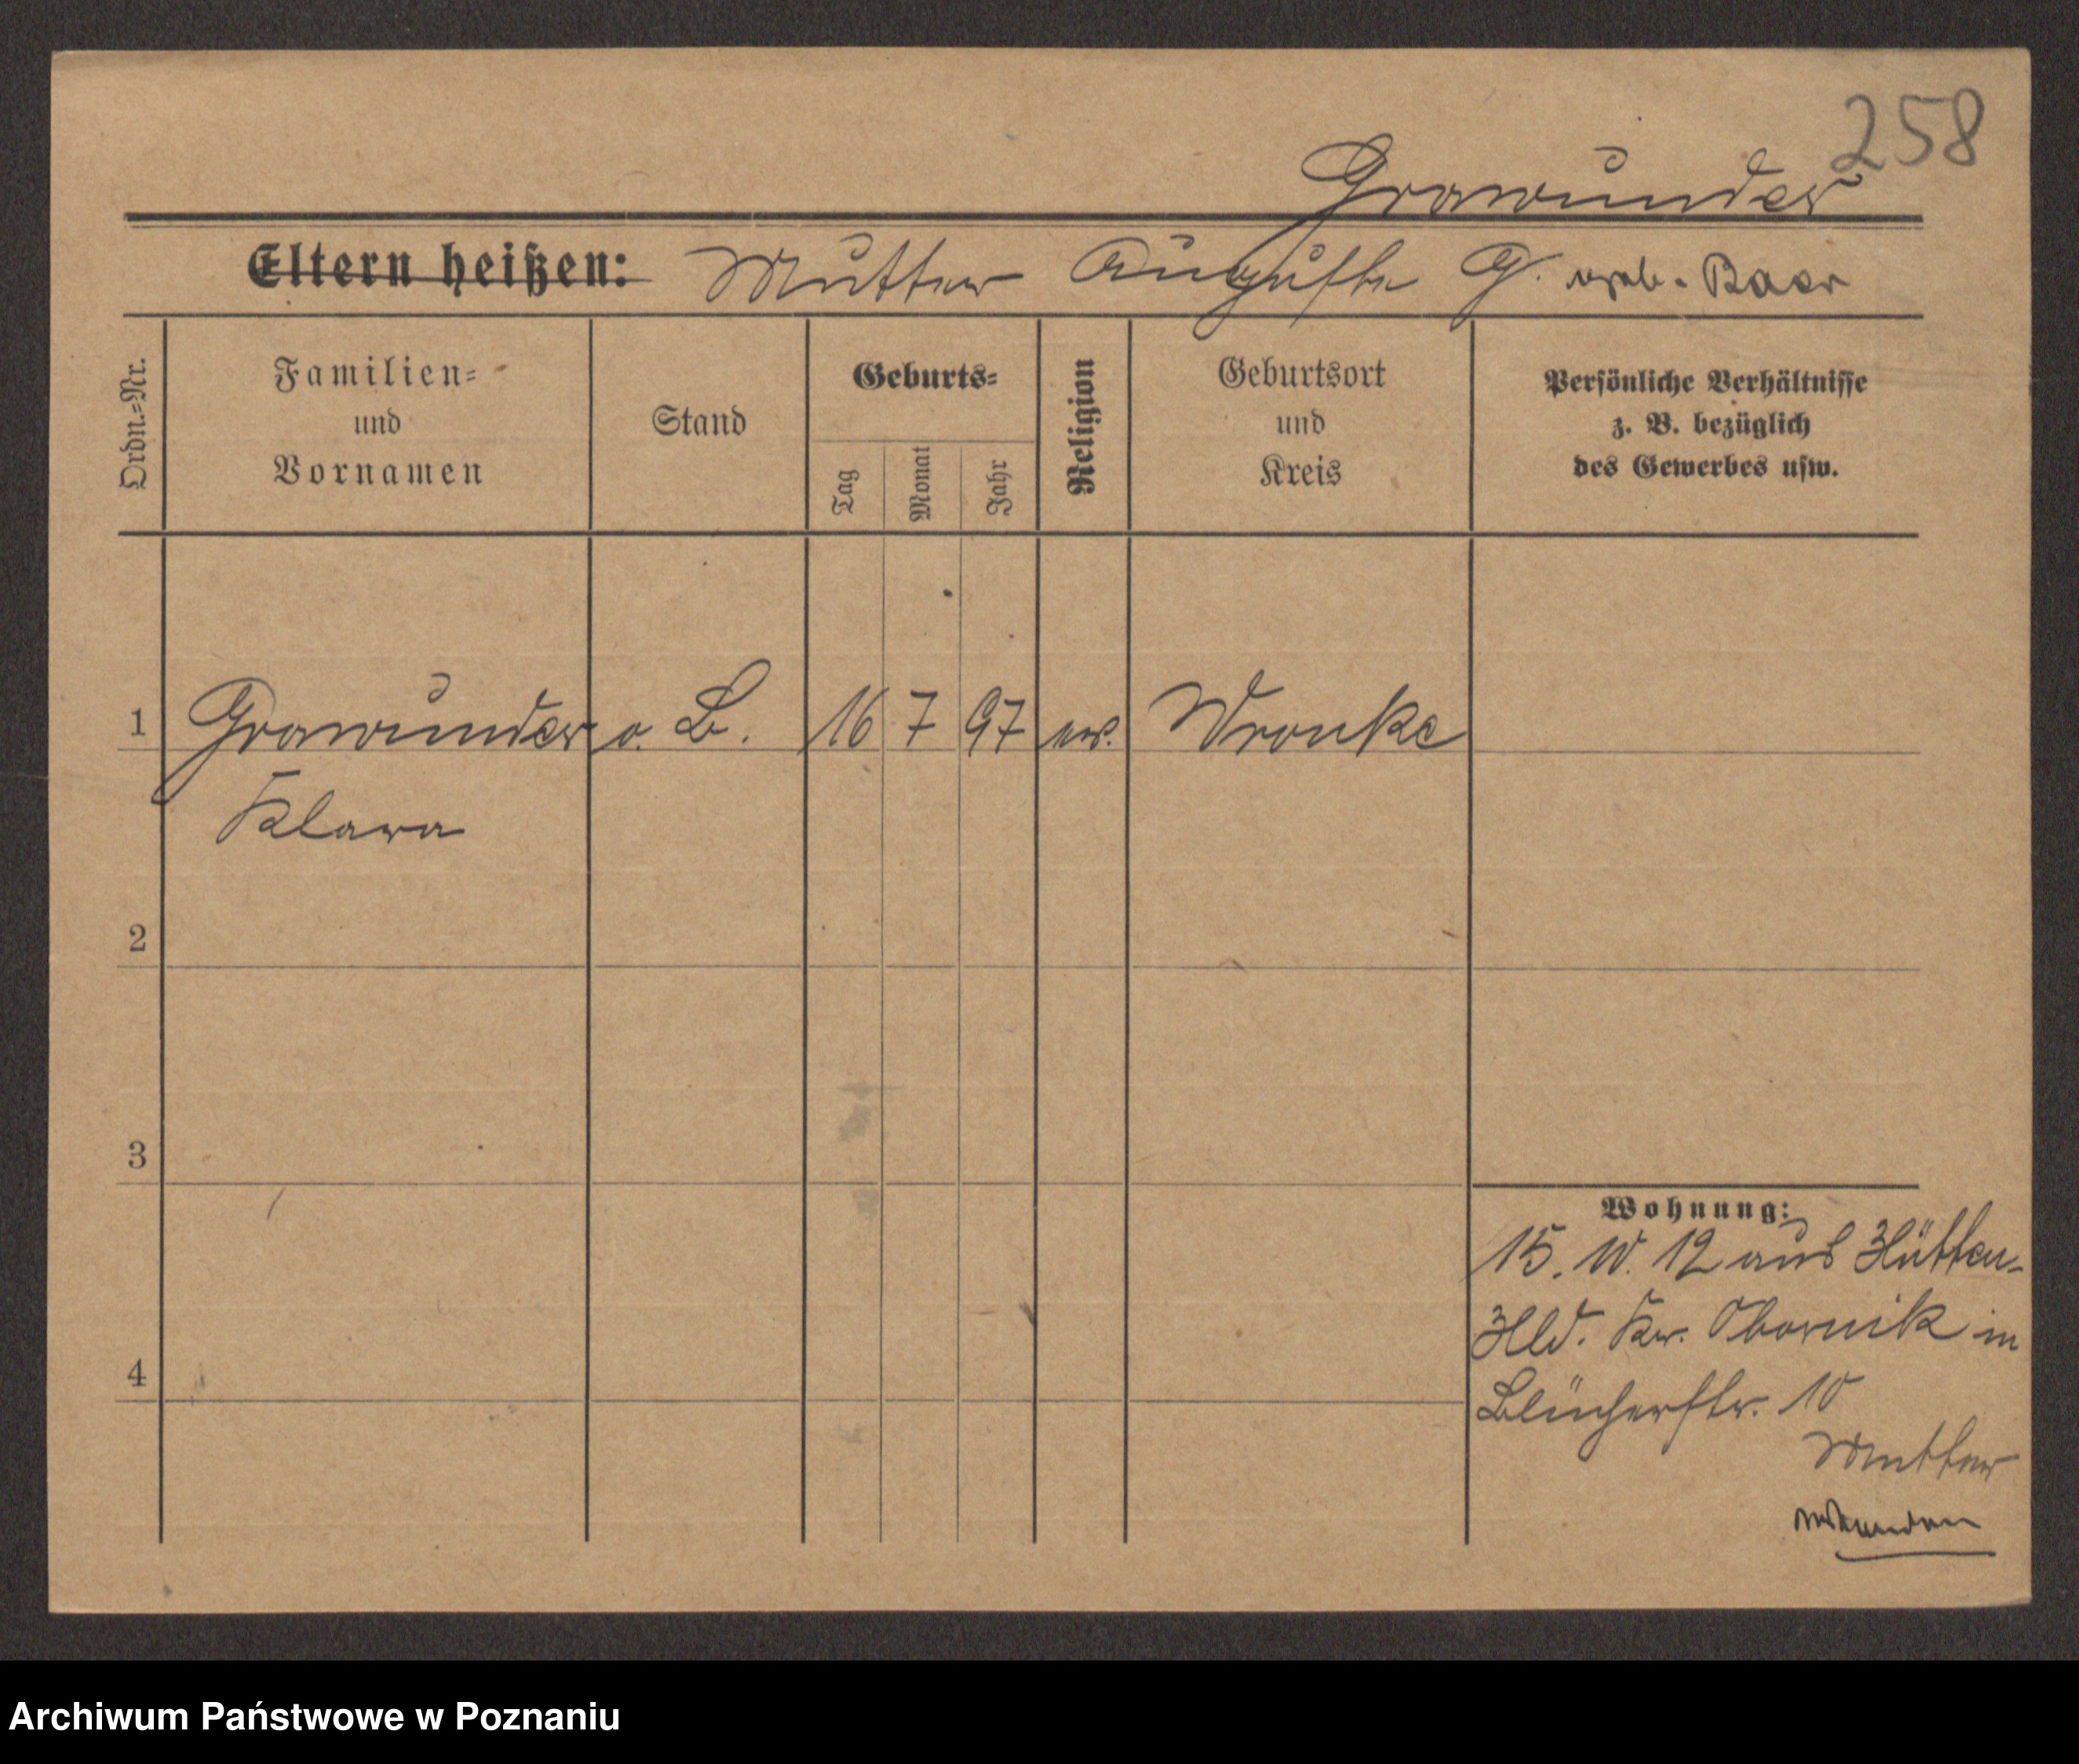 258
Grawunder
Eltern heißen: Mutter Auguste G. geb. Baer
Ordn.-Nr.
Familien-
und
Vornamen
Stand
Geburts-
Tag
Monat
Jahr
Religion
Geburtsort
und
Kreis
Persönliche Verhältnisse
z. B. bezüglich
des Gewerbes usw.
1 Grawunder o. B. 16 7 97 ev. Wronke
Klara
2
3
4
Wohnung:
15. 10. 12 aus Hütten-
Hld. Kr. Obornik in
Blücherstr. 10
Mutter
Archiwum Państwowe w Poznaniu